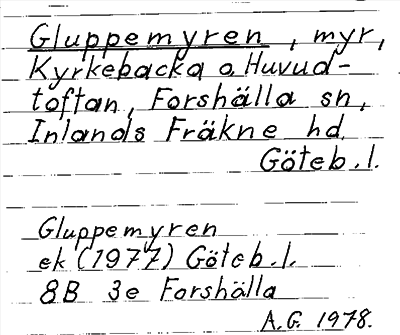 Gluppemyren, myr,
Kyrkebacka o. Huvud-
toftan, Forshälla sn,
Inlands Fräkne hd.
Göteb. l.
Gluppemyren
ek (1977) Göteb. l.
8B 3e Forshälla
A.G. 1978.